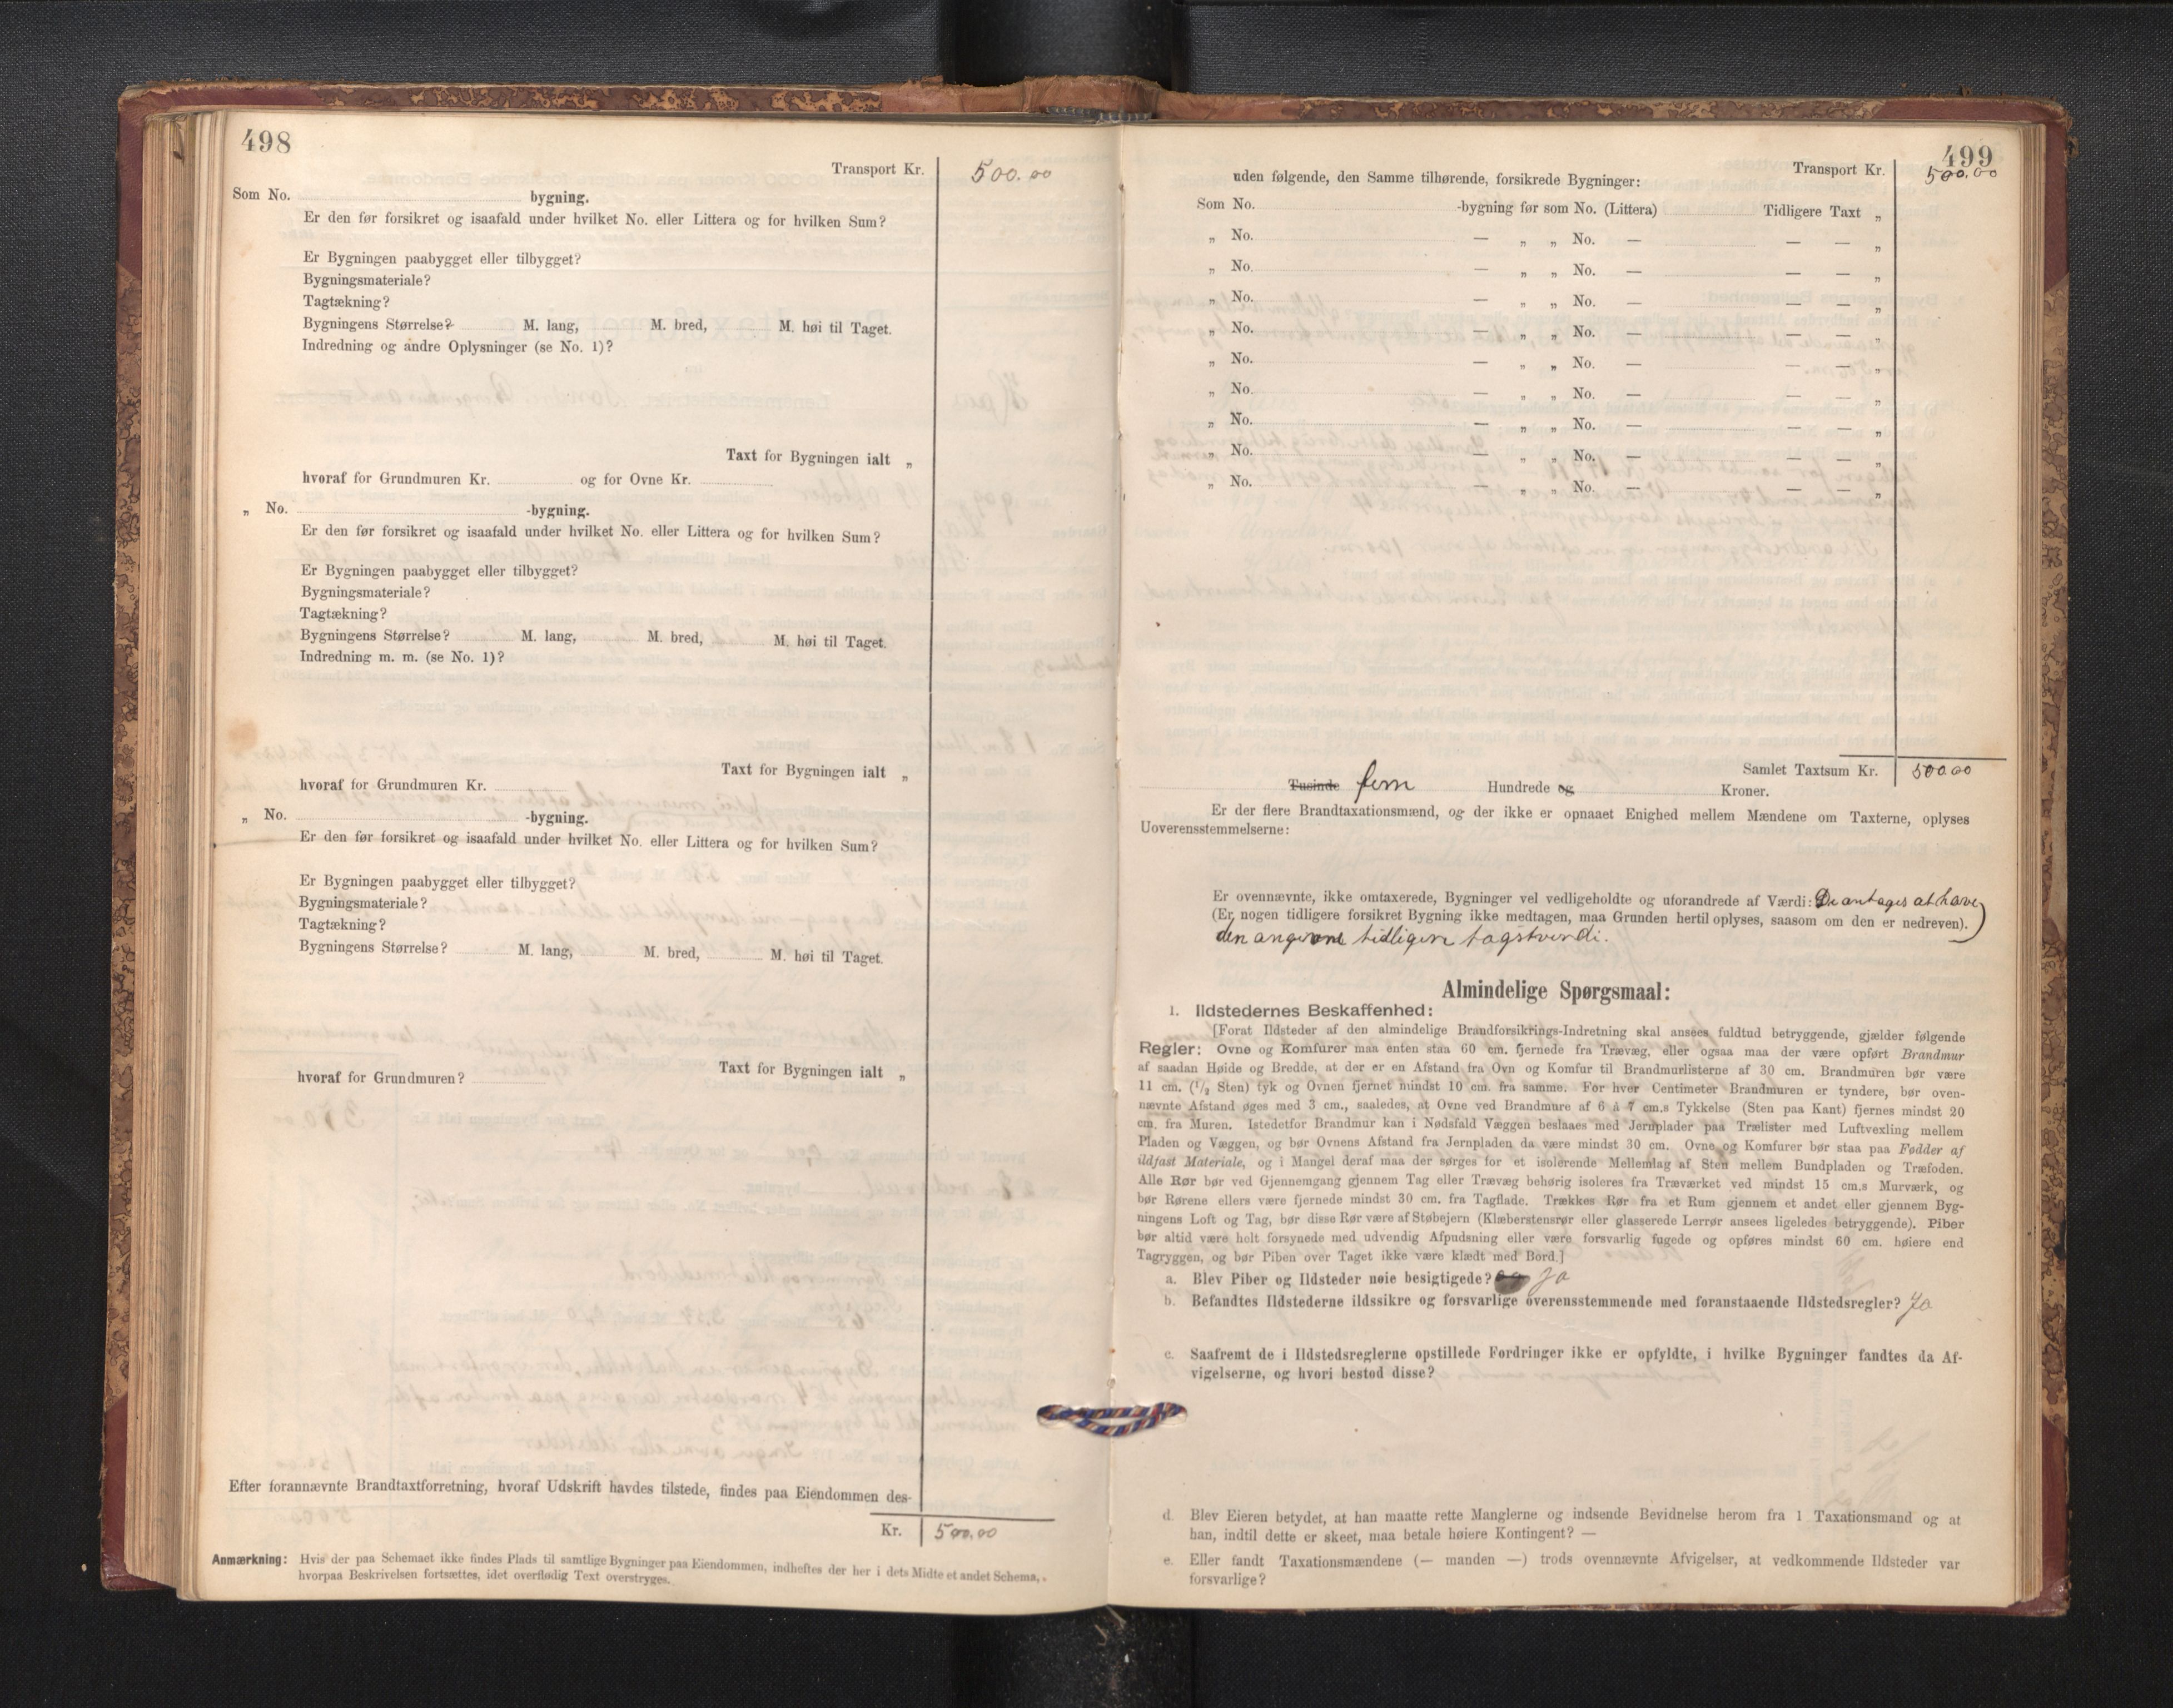 498
Transport Kr. 500.00
Som No. bygning.
Er den før forsikret og isaafald under hvilket No. eller Littera og for hvilken Sum?
Er Bygningen paabygget eller tilbygget?
Bygningsmateriale?
Tagtækning?
Bygningens Størrelse? M. lang, M. bred, M. høi til Taget.
Indredning og andre Oplysninger (se No. 1)?
Taxt for Bygningen ialt „
hvoraf for Grundmuren Kr. og for Ovne Kr.
„ No. -bygning.
Er den før forsikret og isaafald under hvilket No. eller Littera og for hvilken Sum?
Er Bygningen paabygget eller tilbygget?
Bygningsmateriale?
Tagtækning?
Bygningens Størrelse? M. lang, M. bred, M. høi til Taget.
Indredning m. m. (se No. 1)?
Taxt for Bygningen ialt „
hvoraf for Grundmuren Kr.
„ No. -bygning.
Er den før forsikret og isaafald under hvilket No. eller Littera og for hvilken Sum?
Er Bygningen paabygget eller tilbygget?
Bygningsmateriale?
Tagtækning?
Bygningens Størrelse? M. lang, M. bred, M. høi til Taget.
Taxt for Bygningen ialt „
hvoraf for Grundmuren?
Efter forannævnte Brandtaxtforretning, hvoraf Udskrift havdes tilstede, findes paa Eiendommen des-
Kr. 500.00
Anmærkning: Hvis der paa Schemaet ikke findes Plads til samtlige Bygninger paa Eiendommen, indheftes der her i dets Midte et andet Schema,
hvorpaa Beskrivelsen fortsættes, idet overflødig Text overstryges.
499
Transport Kr. 500.00
uden følgende, den Samme tilhørende, forsikrede Bygninger:
Som No. -bygning før som No. (Littera) Tidligere Taxt „
„ No. — „ „ No. — — — „
„ No. — „ „ No. — — — „
„ No. — „ „ No. — — — „
„ No. — „ „ No. — — — „
„ No. — „ „ No. — — — „
„ No. — „ „ No. — — — „
„ No. — „ „ No. — — — „
„ No. — „ „ No. — — — „
„ No. — „ „ No. — — — „
Samlet Taxtsum Kr. 500.00
Tusinde fem Hundrede og Kroner.
Er der flere Brandtaxationsmænd, og der ikke er opnaaet Enighed mellem Mændene om Taxterne, oplyses
Uoverensstemmelserne:
Er ovennævnte, ikke omtaxerede, Bygninger vel vedligeholdte og uforandrede af Værdi: De antages at have
(Er nogen tidligere forsikret Bygning ikke medtagen, maa Grunden hertil oplyses, saasom om den er nedreven).
den angivne tidligere tagstverdi.
Almindelige Spørgsmaal:
1. Ildstedernes Beskaffenhed:
[Forat Ildsteder af den almindelige Brandforsikrings-Indretning skal ansees fuldtud betryggende, gjælder følgende
Regler: Ovne og Komfurer maa enten staa 60 cm. fjernede fra Trævæg, eller ogsaa maa der være opført Brandmur
af saadan Høide og Bredde, at der er en Afstand fra Ovn og Komfur til Brandmurlisterne af 30 cm. Brandmuren bør være
11 cm. (1/2 Sten) tyk og Ovnen fjernet mindst 10 cm. fra samme. For hver Centimeter Brandmuren er tyndere, bør oven-
nævnte Afstand øges med 3 cm., saaledes, at Ovne ved Brandmure af 6 à 7 cm.s Tykkelse (Sten paa Kant) fjernes mindst 20
cm. fra Muren. Istedetfor Brandmur kan i Nødsfald Væggen beslaaes med Jernplader paa Trælister med Luftvexling mellem
Pladen og Væggen, og bør Ovnens Afstand fra Jernpladen da være mindst 30 cm. Ovne og Komfurer bør staa paa Fødder af
ildfast Materiale, og i Mangel deraf maa der sørges for et isolerende Mellemlag af Sten mellem Bundpladen og Træfoden.
Alle Rør bør ved Gjennemgang gjennem Tag eller Trævæg behørig isoleres fra Træværket ved mindst 15 cm.s Murværk, og
bør Rørene ellers være fjernede mindst 30 cm. fra Tagflade. Trækkes Rør fra et Rum gjennem et andet eller gjennem Byg-
ningens Loft og Tag, bør disse Rør være af Støbejern (Klæberstensrør eller glasserede Lerrør ansees ligeledes betryggende). Piber
bør altid være helt forsynede med udvendig Afpudsning eller være forsvarlig fugede og opføres mindst 60 cm. høiere end
Tagryggen, og bør Piben over Taget ikke være klædt med Bord.]
a. Blev Piber og Ildsteder nøie besigtigede? Ja
b. Befandtes Ildstederne ildssikre og forsvarlige overensstemmende med foranstaaende Ildstedsregler? Ja
c. Saafremt de i Ildstedsreglerne opstillede Fordringer ikke er opfyldte, i hvilke Bygninger fandtes da Af-
vigelserne, og hvori bestod disse?
d. Blev Eieren betydet, at han maatte rette Manglerne og indsende Bevidnelse herom fra 1 Taxationsmand og at
han, indtil dette er skeet, maa betale høiere Kontingent? —
e. Eller fandt Taxationsmændene (— manden —) trods ovennævnte Afvigelser, at vedkommende Ildsteder var
forsvarlige?